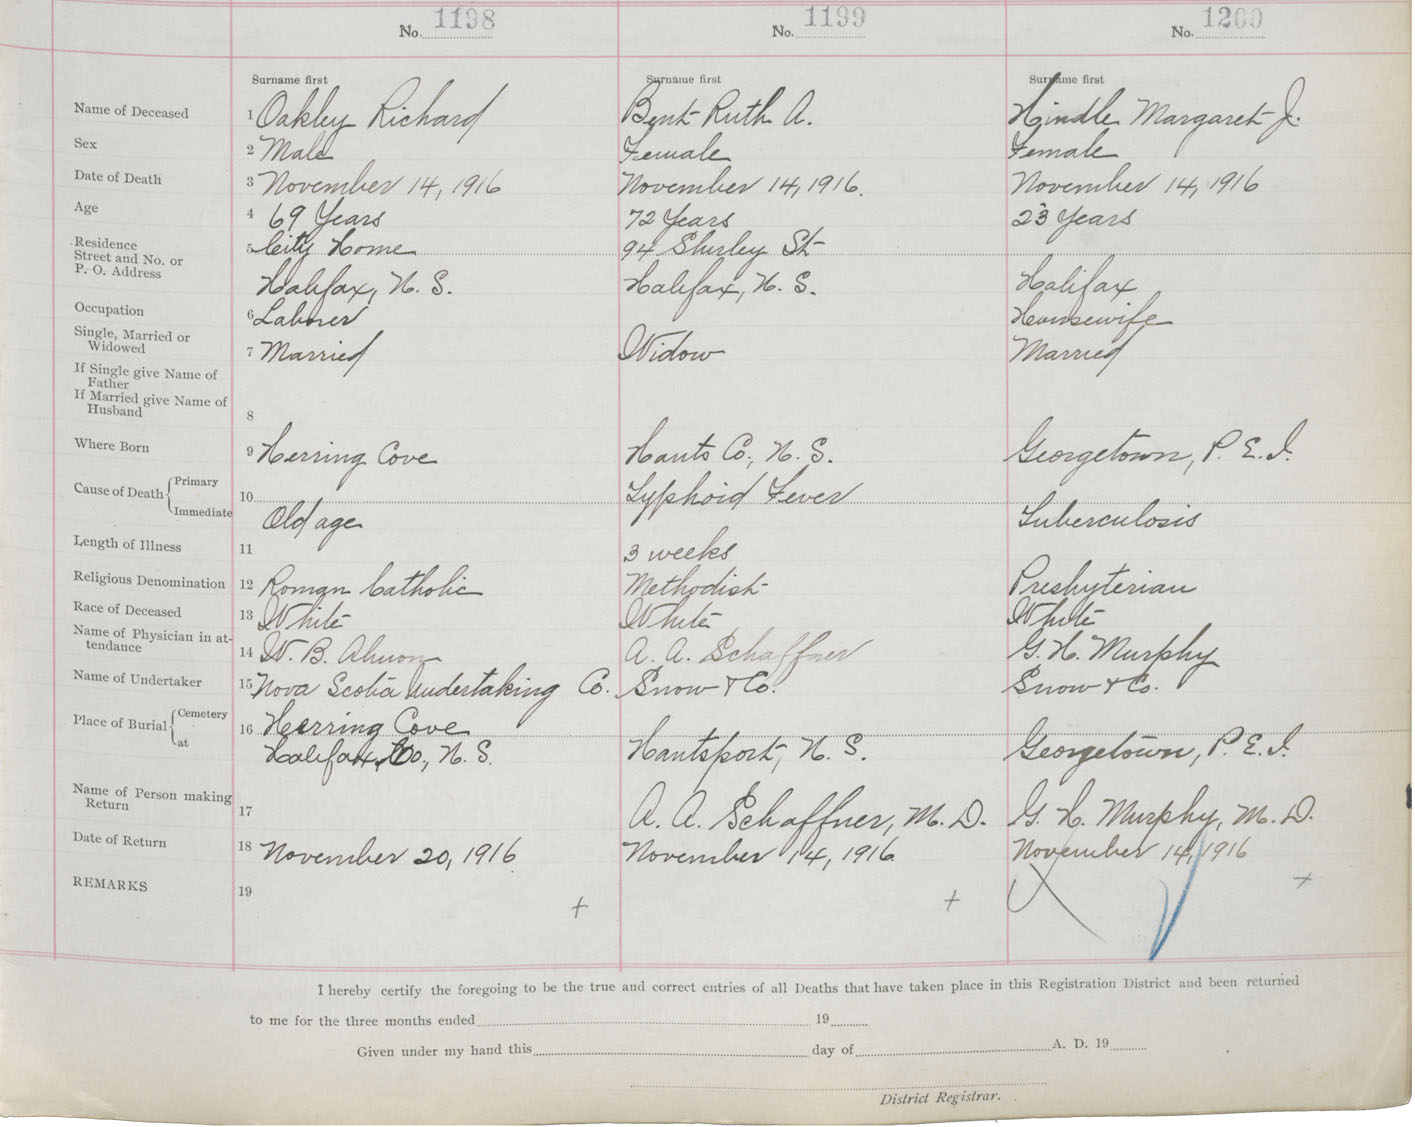 No. 1198 No. 1199 No. 1200
Surname first Surname first Surname first
Name of Deceased 1 Oakley Richard Bent Ruth A. Hindle Margaret J.
Sex 2 Male Female Female
Date of Death 3 November 14, 1916 November 14, 1916. November 14, 1916
Age 4 69 Years 72 Years 23 Years
Residence 5 City Home 94 Shirley St
Street and No. or
P. O. Address Halifax, N. S. Halifax, N. S. Halifax
Occupation 6 Laborer Housewife
Single, Married or
Widowed 7 Married Widow Married
If Single give Name of
Father
If Married give Name of
Husband 8
Where Born 9 Herring Cove Hants Co., N. S. Georgetown, P. E. I.
Cause of Death Primary 10 Typhoid Fever
Immediate Old age Tuberculosis
Length of Illness 11 3 weeks
Religious Denomination 12 Roman Catholic Methodist Presbyterian
Race of Deceased 13 White White White
Name of Physician in at-
tendance 14 W. B. Almon A. A. Schaffner G. H. Murphy
Name of Undertaker 15 Nova Scotia Undertaking Co. Snow & Co. Snow & Co.
Place of Burial Cemetery 16 Herring Cove
at Halifax, Co., N. S. Hantsport, N. S. Georgetown, P. E. I.
Name of Person making
Return 17 A. A. Schaffner, M. D. G. H. Murphy, M. D.
Date of Return 18 November 20, 1916 November 14, 1916 November 14, 1916
REMARKS 19 + + +
I hereby certify the foregoing to be the true and correct entries of all Deaths that have taken place in this Registration District and been returned
to me for the three months ended 19
Given under my hand this day of A. D. 19
District Registrar.